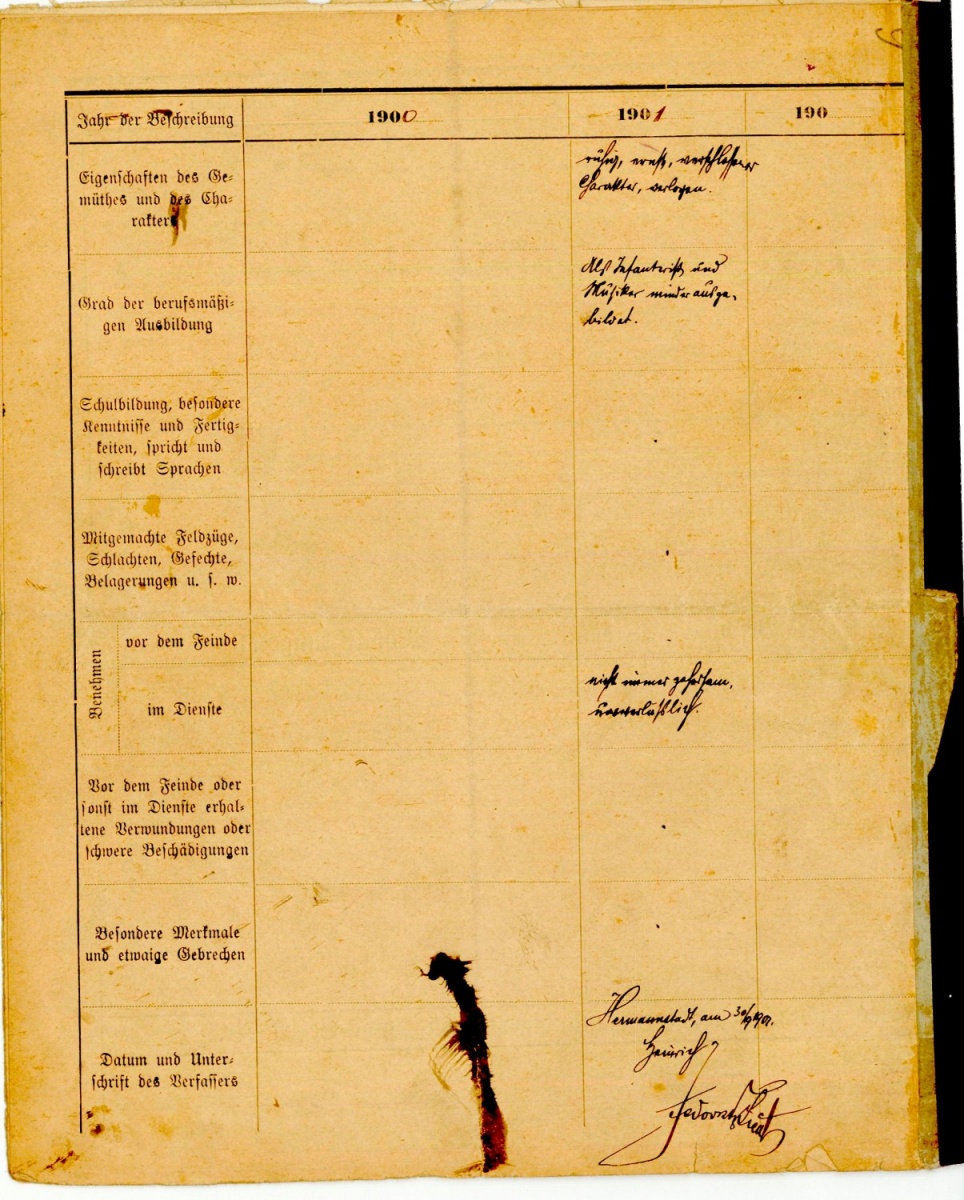 9
Jahr der Beschreibung
1900
1901
190
Eigenschaften des Ge-
müthes und des Cha-
rakters
ruhig, ernst, verschlossener
Charakter, verlogen.
Grad der berufsmäßi-
gen Ausbildung
Als Infanterist und
Musiker minder ausge-
bildet.
Schulbildung, besondere
Kenntnisse und Fertig-
keiten, spricht und
schreibt Sprachen
Mitgemachte Feldzüge,
Schlachten, Gefechte,
Belagerungen u. s. w.
Benehmen
vor dem Feinde
im Dienste
nicht immer gehorsam,
unverläßlich.
Vor dem Feinde oder
sonst im Dienste erhal-
tene Verwundungen oder
schwere Beschädigungen
Besondere Merkmale
und etwaige Gebrechen
Datum und Unter-
schrift des Verfassers
Hermannstadt, am 30/9 1901.
Heinrich